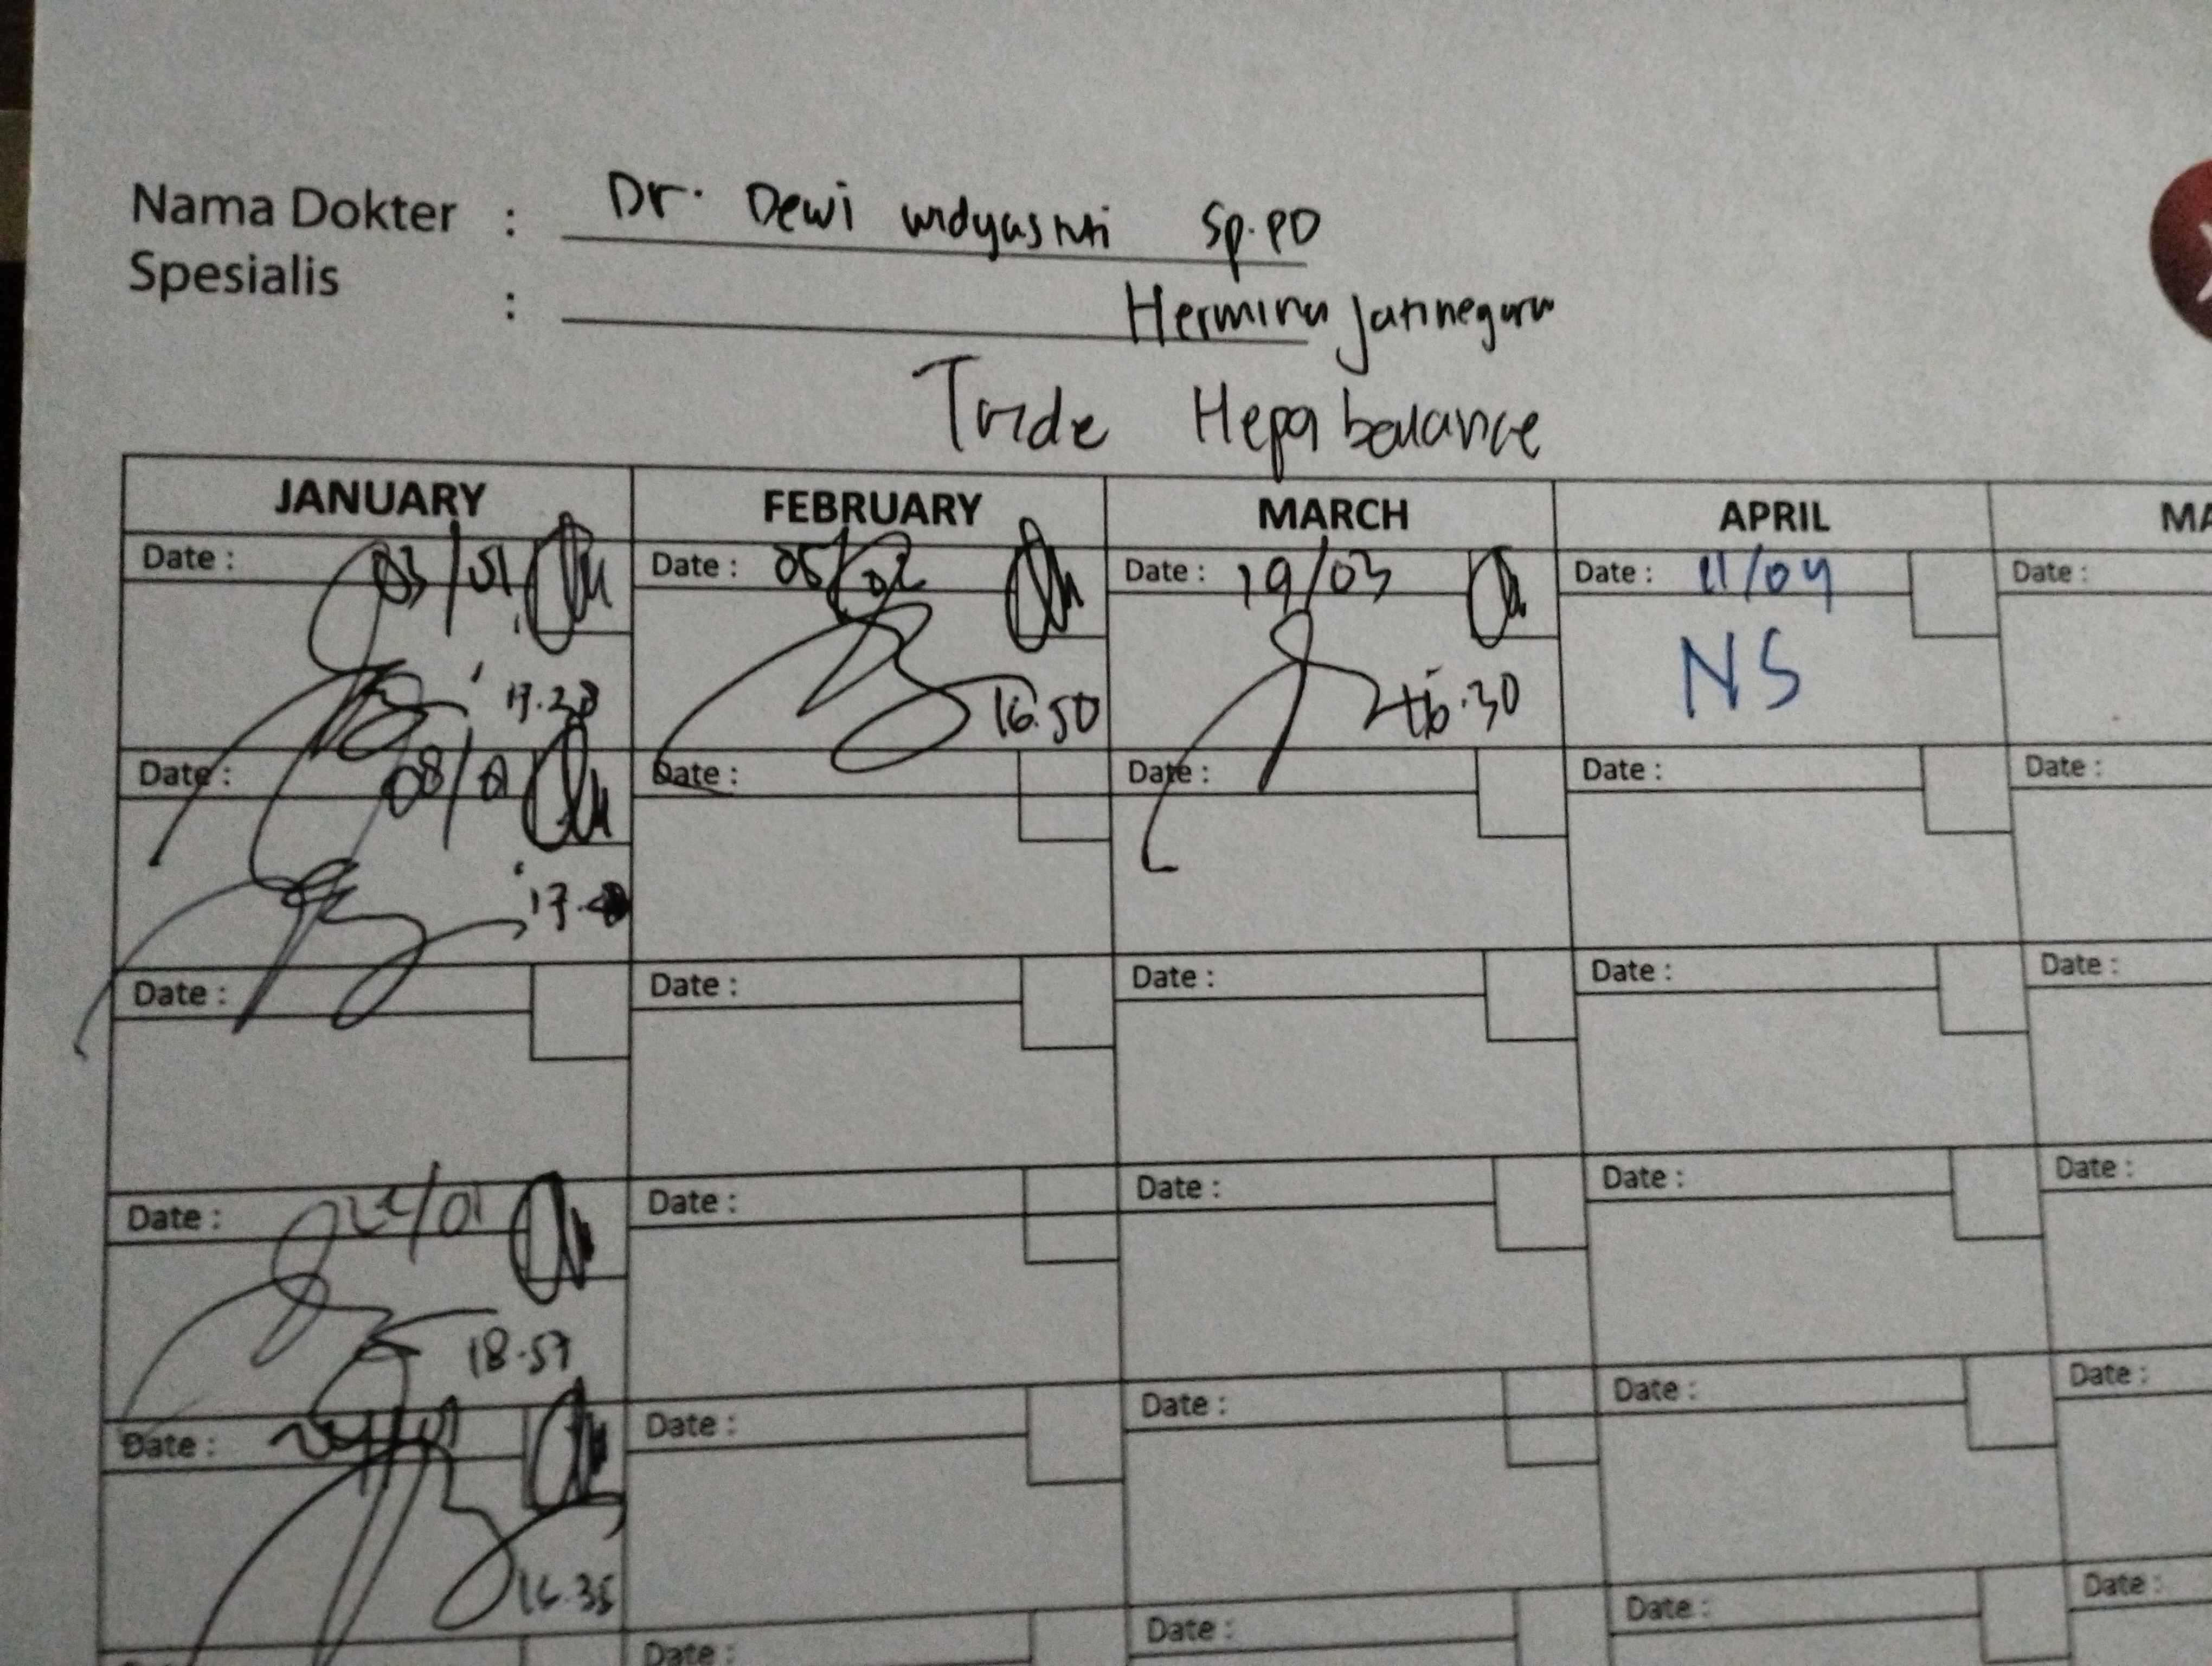 Nama Dokter : Dr. Dewi widyastuti Sp.PD
Spesialis :
Hermina Jatinegara
Hepa balance
JANUARY FEBRUARY MARCH APRIL MA
Date : 03/01 Date : 05/02 Date : 19/03 Date : 11/04 Date :
17.28 16.50 16.30 NS
Date : 08/01 Date : Date : Date : Date :
Date : Date : Date : Date : Date :
Date : 22/01 Date : Date : Date : Date :
18.57
Date : Date : Date : Date : Date :
16.35
Date : Date : Date : Date :